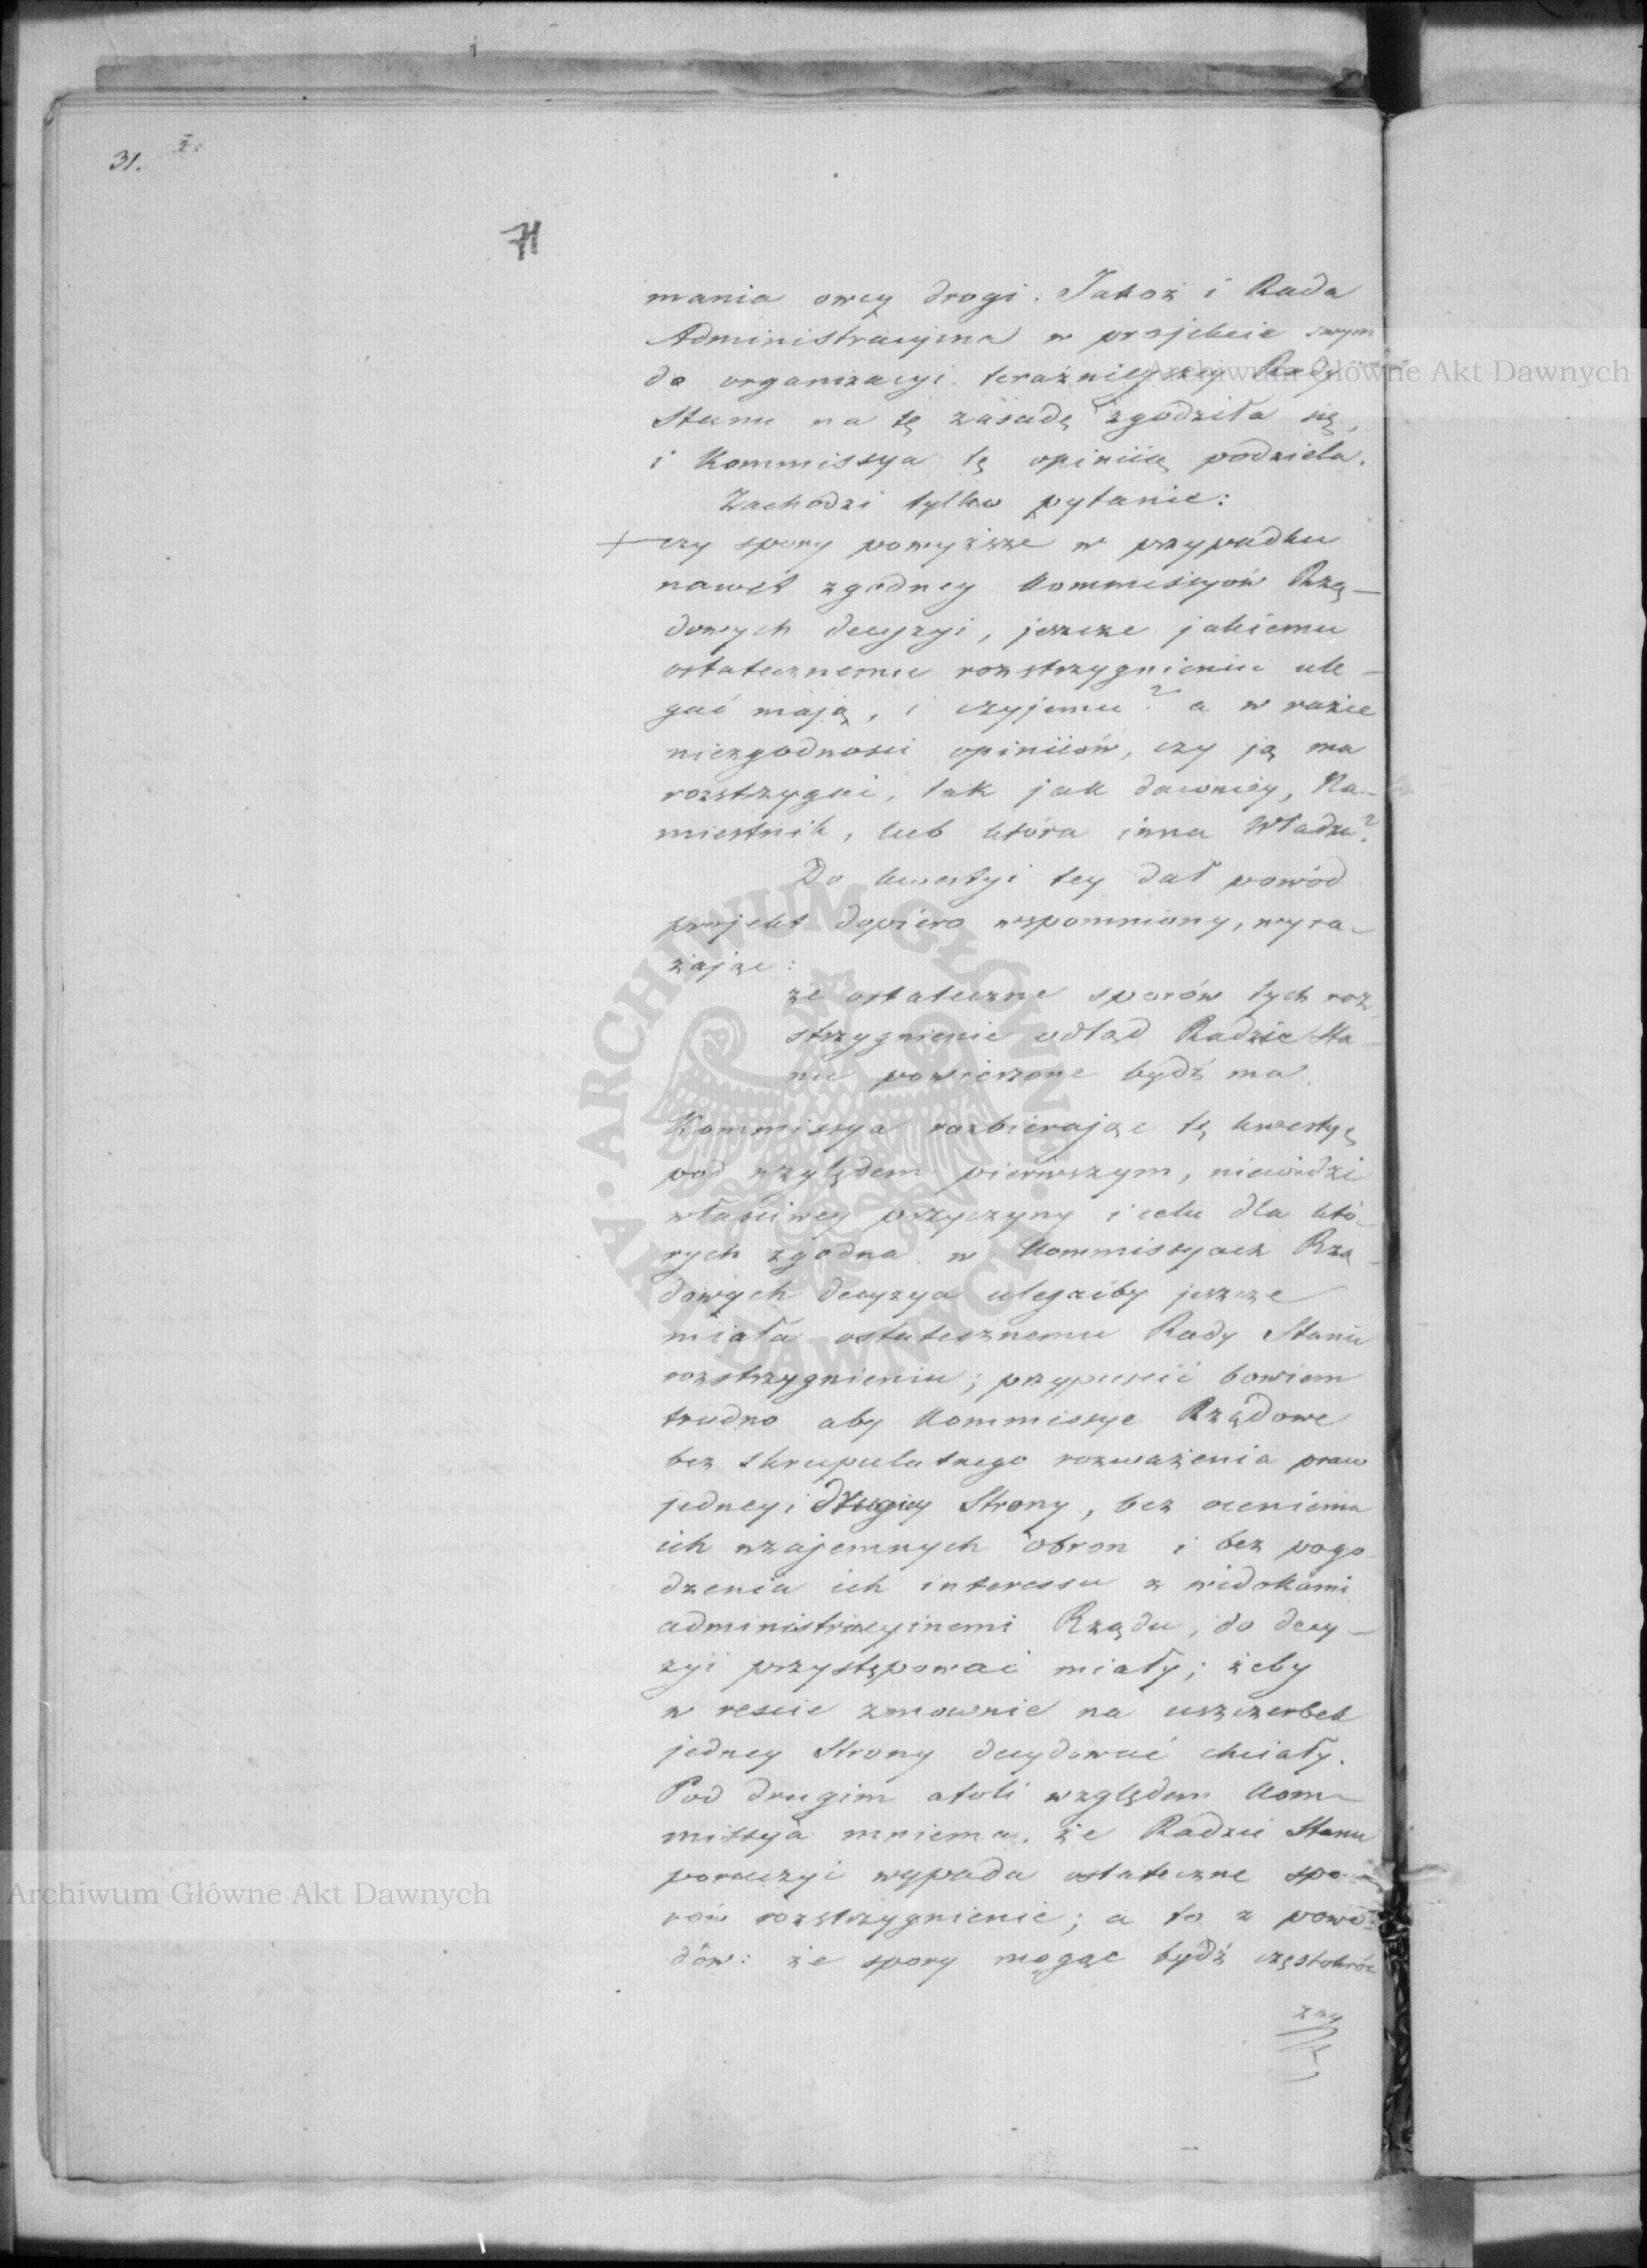 31.
71
mania owey drogi. Jakoż i Rada
Administracyina w projekcie swym
do organizacyi teraźnieyszey Rady
Stanu na tę zasadę zgodziła się,
i Kommissya tę opiniią podziela.
Zachodzi tylko pytanie:
czy spory powyższe w przypadku
nawet zgodney Kommissyów Rzą-
dowych decyzyi, jeszcze jakiemu
ostatecznemu rozstrzygnieniu ule-
gać mają, i czyjemu? a w razie
niezgodności opiniiów, czy ją ma
rozstrzygać, tak jak dawniey, Na-
miestnik, lub która inna Władza?
Do kwestyi tey dał powód
projekt dopiero wspomniony, wyra-
żając:
że ostateczne sporów tych roz-
strzygnienie odtąd Radzie Sta-
nu powierzone bydź ma.
Kommissya rozbierając tę kwestyę
pod względem pierwszym, niewidzi
właściwey przyczyny i celu dla któ-
rych zgodna w Kommissyach Rzą-
dowych decyzya ulegaćby jeszcze
miała ostatecznemu Rady Stanu
rozstrzygnieniu; przypuścić bowiem
trudno aby Kommissye Rządowe
bez skrupulatnego rozważenia praw
jedney i drugiey Strony, bez ocenienia
ich wzajemnych obron i bez pogo-
dzenia ich interessu z widokami
administracyinemi Rządu, do decy-
zyi przystępować miały; żeby
w reście zmownie na uszczerbek
jedney Strony decydować chciały.
Pod drugim atoli względem Kom-
missya mniema, że Radzie Stanu
poruczyć wypada ostateczne spo-
rów rozstrzygnienie; a to z powo-
dów: że spory mogąc bydź częstokroć
zay
Archiwum Główne Akt Dawnych
Archiwum Główne Akt Dawnych
ARCHIWUM GŁÓWNE AKT DAWNYCH